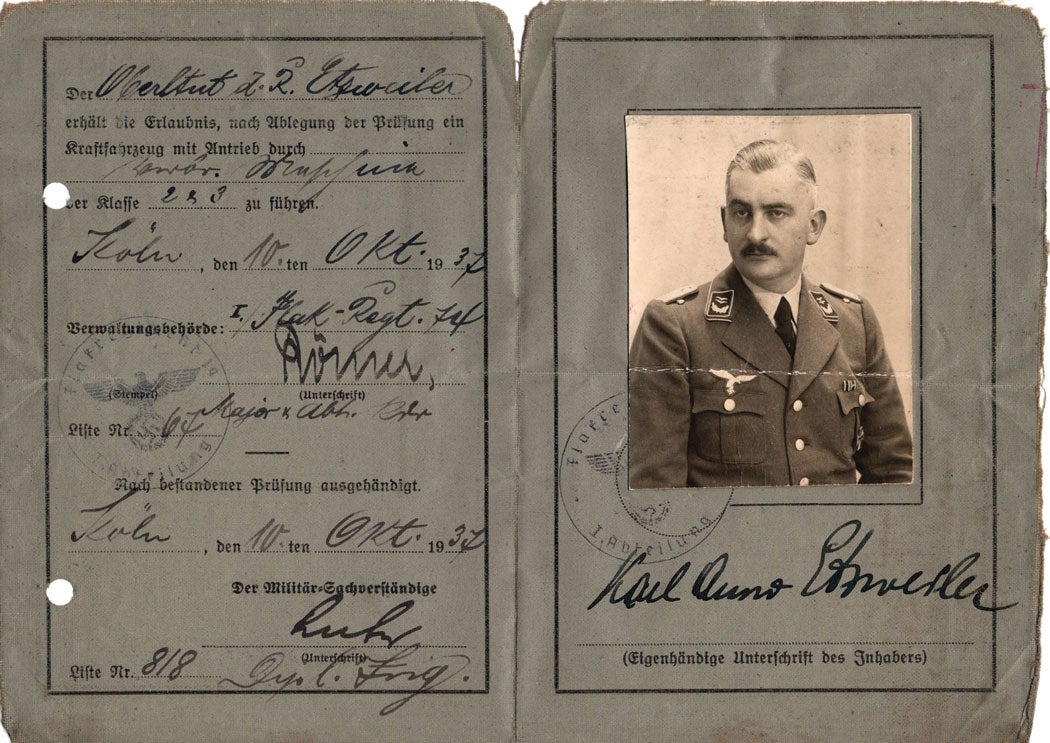 Der Oberltnt d. R. Etzweiler
erhält die Erlaubnis, nach Ablegung der Prüfung ein
Kraftfahrzeug mit Antrieb durch
Verbr. Maschine
der Klasse 2 & 3 zu führen.
Köln, den 10. ten Okt. 1937
Verwaltungsbehörde: I. Flak-Regt. 74
Römer,
(Stempel) (Unterschrift)
Major u. Abt. Kdr
Liste Nr. 67
Nach bestandener Prüfung ausgehändigt.
Köln, den 10. ten Okt. 1937
Der Militär-Sachverständige
(Unterschrift)
Liste Nr. 818 Dipl. Ing.
I. Abteilung
I. Abteilung
Karl Anno Etzweiler
(Eigenhändige Unterschrift des Inhabers)